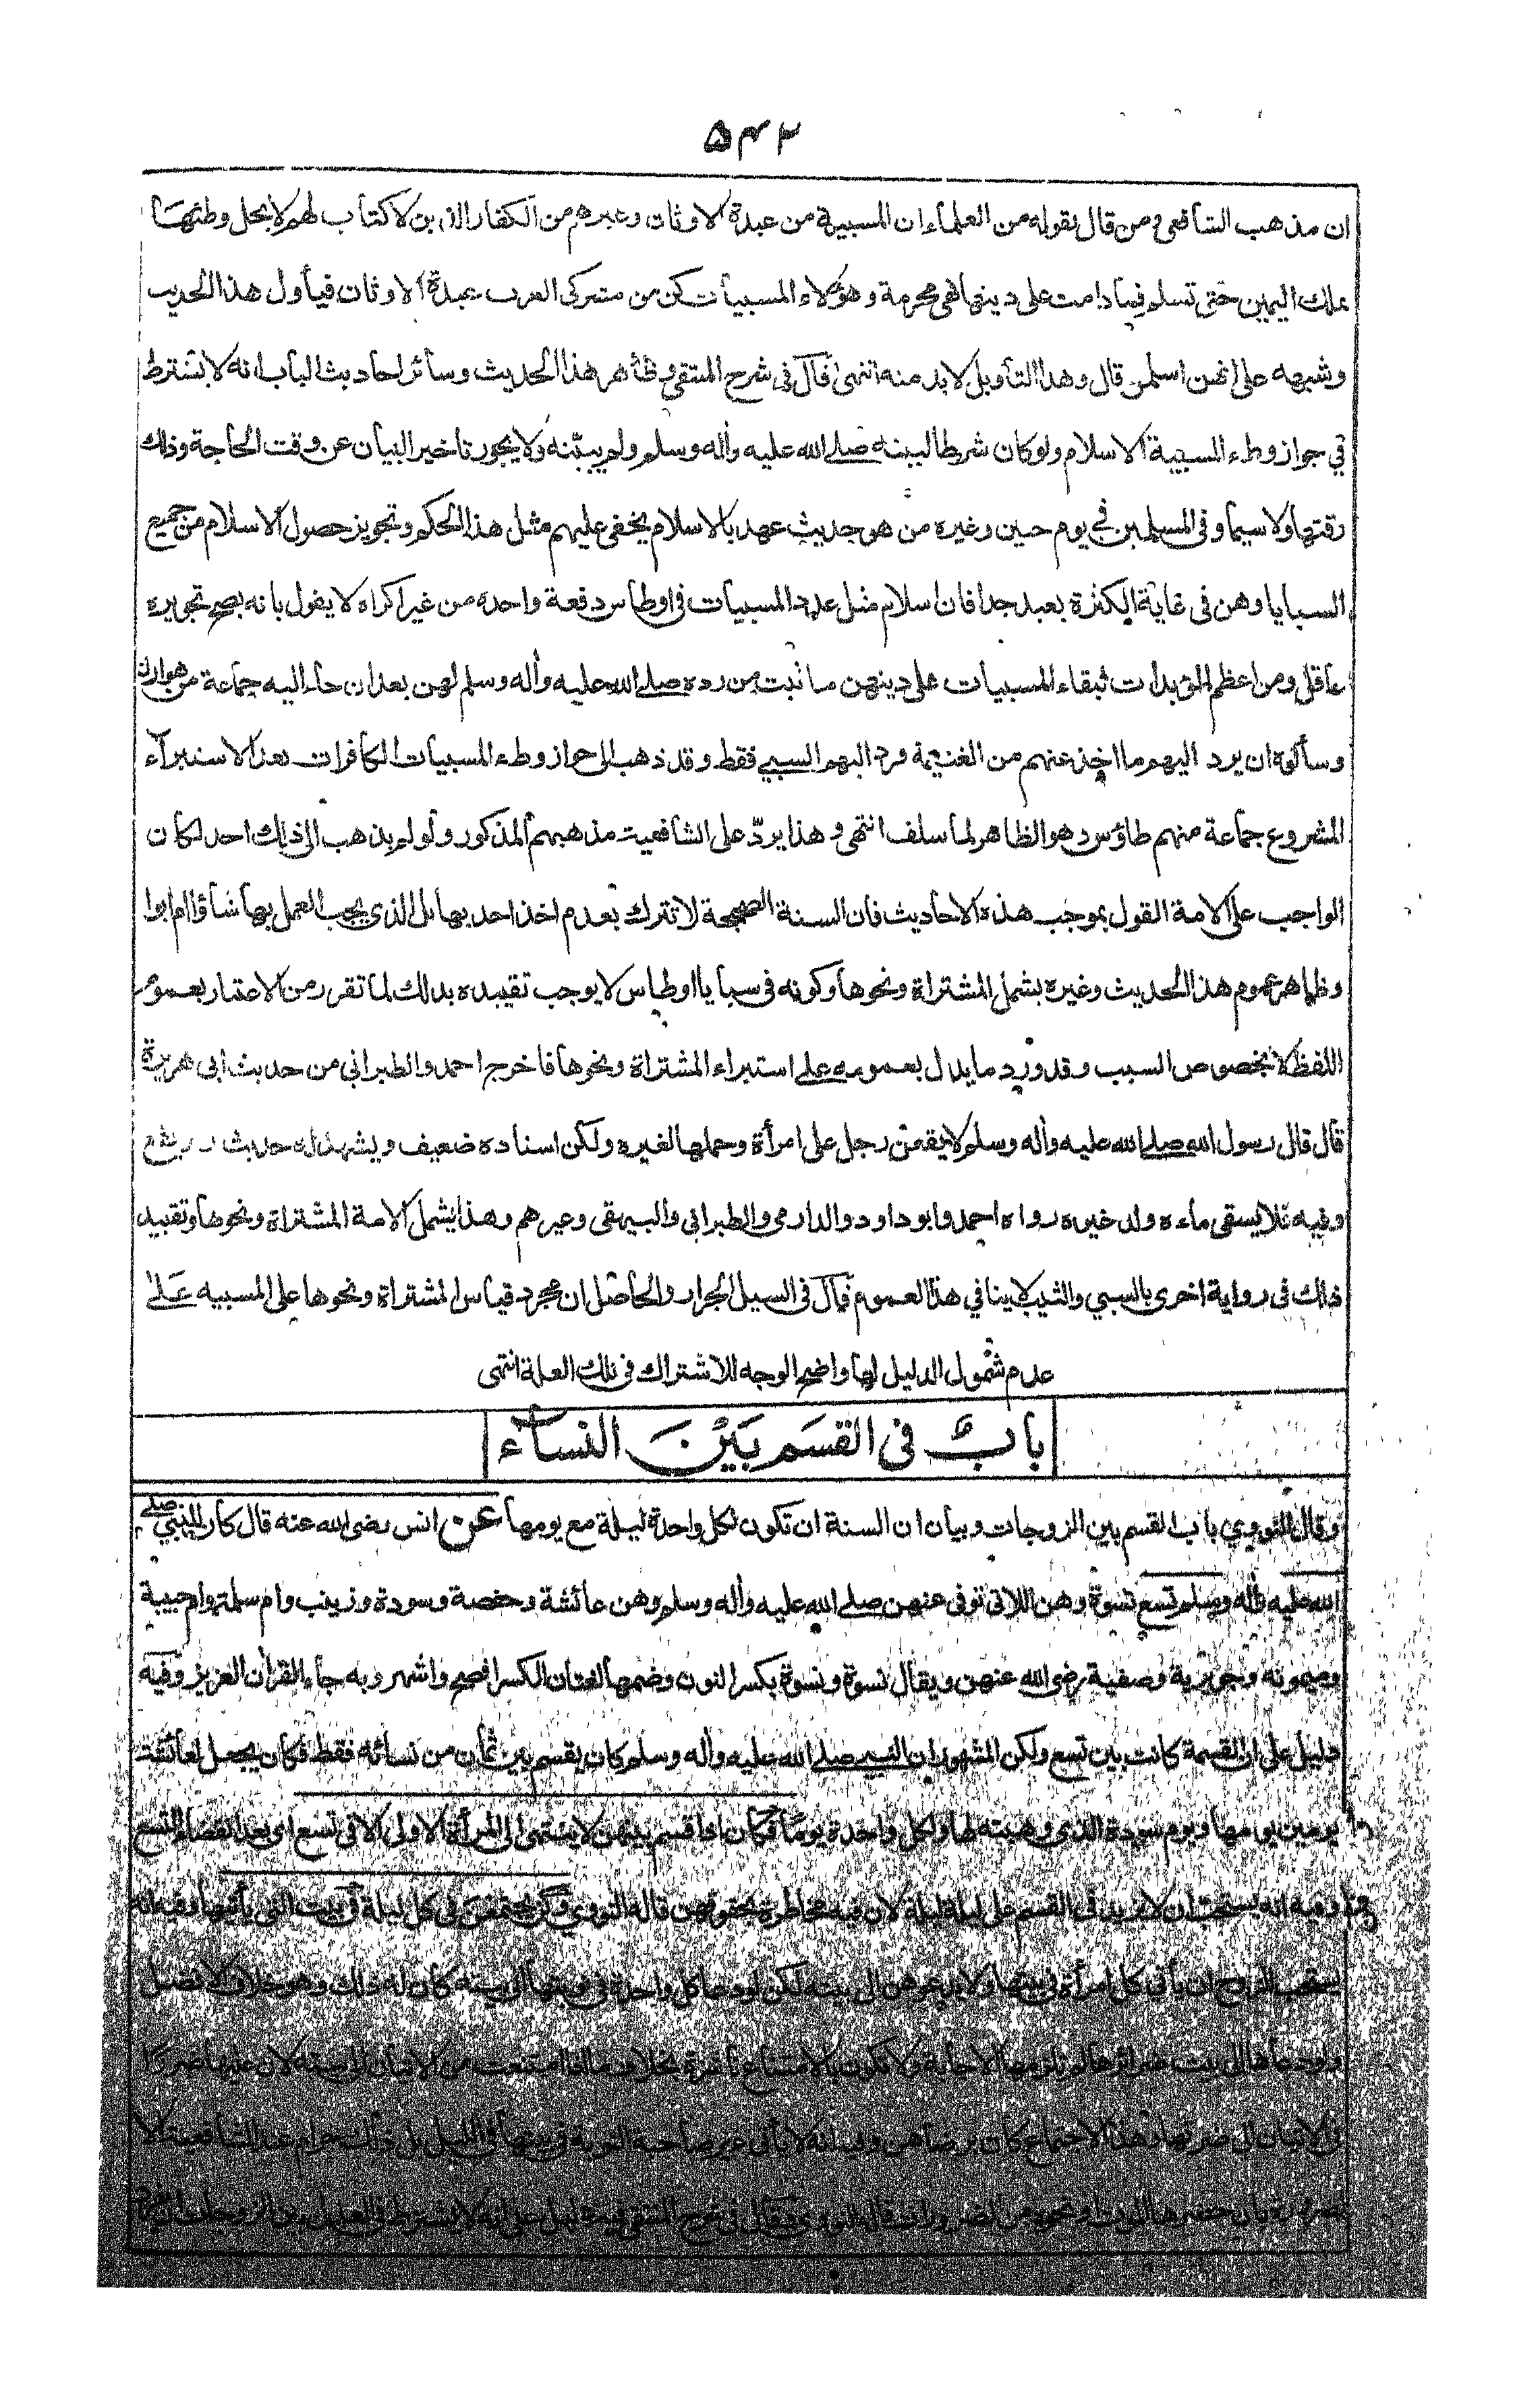 ۵۴۲
ان مذهب الشافعي ومن قال بقوله من العلماء ان المسبية من عبدة الاوثان وغيرهم من الكفار الذين لا كتاب لهم لا يحل وطئها
بملك اليمين حتى تسلم فما دامت على دينها فهي محرمة وهؤلاء المسبيات كن من مشركى العرب عبدة الاوثان فيأول هذا الحديث
وشبهه على انهن اسلمن قال وهذا التأويل لا بد منه انتهى قال في شرح المنتقى وظاهر هذا الحديث وسائر احاديث الباب انه لا يشترط
في جواز وطء المسبية الاسلام ولو كان شرطا لبينه صلى الله عليه وآله وسلم ولم يبينه ولا يجوز تأخير البيان عن وقت الحاجة وذلك
وقتها ولا سيما وفى المسلمين في يوم حنين وغيره من هو حديث عهد بالاسلام يخفى عليهم مثل هذا الحكم وتجويز حصول الاسلام من جميع
السبايا وهن فى غاية الكثرة بعيد جدا فان اسلام مثل عدد المسبيات فى اوطاس دفعة واحدة من غير اكراه لا يقول بانه يصح تجويزه
عاقل ومن اعظم المؤيدات لبقاء المسبيات على دينهن ما ثبت من رده صلى الله عليه وآله وسلم لهن بعد ان جاء اليه جماعة من هوازن
وسألوه ان يرد اليهم ما اخذ عنهم من الغنيمة فرد اليهم السبي فقط وقد ذهب الى جواز وطء المسبيات الكافرات بعد الاستبراء
المشروع جماعة منهم طاؤس وهو الظاهر لما سلف انتهى وهذا يردّ على الشافعية مذهبهم المذكور ولو لم يذهب الى ذلك احد لكان
الواجب على الامة القول بموجب هذه الاحاديث فان السنة الصحيحة لا تترك بعدم اخذ احد بها بل الذى يجب العمل بها شاؤا ام ابوا
وظاهر عموم هذا الحديث وغيره يشمل المشتراة ونحوها وكونه فى سبايا اوطاس لا يوجب تقييده بذلك لما تقرر من الاعتبار بعموم
اللفظ لا بخصوص السبب وقد ورد ما يدل بعمومه على استبراء المشتراة ونحوها فاخرج احمد والطبرانى من حديث ابى هريرة
قال قال رسول الله صلى الله عليه وآله وسلم لا يقعن رجل على امرأة وحملها لغيره ولكن اسناده ضعيف ويشهد له حديث رويفع
وفيه فلا يسقى ماءه ولد غيره رواه احمد وابو داود والدارمى والطبرانى والبيهقى وغيرهم وهذا يشمل الامة المشتراة ونحوها وتقييد
ذلك فى رواية اخرى بالسبي والثيب لا ينافي هذا العموم قال فى السيل الجرار والحاصل ان مجرد قياس المشتراة ونحوها على المسبيه على
عدم شمول الدليل لها واضح الوجه للاشتراك فى تلك العلة انتهى
باب فى القسم بين النساء
وقال النووي باب القسم بين الزوجات وبيان ان السنة ان تكون لكل واحدة ليلة مع يومها عن انس رضى الله عنه قال كان للنبي صلى
الله عليه وآله وسلم تسع نسوة وهن اللاتى توفى عنهن صلى الله عليه وآله وسلم وهن عائشة وحفصة وسودة وزينب وام سلمة وام حبيبة
وميمونة وجويرية وصفية رضى الله عنهن ويقال نسوة ونسوة بكسر النون وضمها لغتان الكسر افصح واشهر وبه جاء القرآن العزيز وفيه
دليل على ان القسمة كانت بين تسع ولكن المشهور ان النبي صلى الله عليه وآله وسلم كان يقسم بين ثمان من نسائه فقط فكان يجعل لعائشة
يومين يومها ويوم سودة الذى وهبته لها ولكل واحدة يوما فكان اذا قسم بينهن لا ينتهى الى المرأة الاولى الا فى تسع اى بعد انقضاء التسع
وفيه انه يستحب ان لا يزيد فى القسم على ليلة ليلة لان فيه مخاطرة بحقوقهن قاله النووي وكن يجتمعن فى كل ليلة فى بيت التى يأتيها وفيه انه
يستحب للزوج ان يأتى كل امرأة فى بيتها ولا يدعوهن الى بيته لكن لو دعا كل واحدة فى نوبتها الى بيته كان له ذلك وهو خلاف الافضل
ولو دعاها الى بيت ضرائرها لم تلزمها الاجابة ولا تكون بالامتناع ناشزة بخلاف ما اذا امتنعت من الاتيان الى بيته لان عليها ضررا
فى الاتيان الى ضرتها وهذا الاجتماع كان برضاهن وفيه انه لا يأتى غير صاحبة النوبة فى بيتها فى الليل بل ذلك حرام عند الشافعية الا
لضرورة بان حضرها الموت او نحوه من الضرورات قاله النووي وقال فى شرح المنتقى فيه دليل على انه لا يشترط فى العدل بين الزوجات